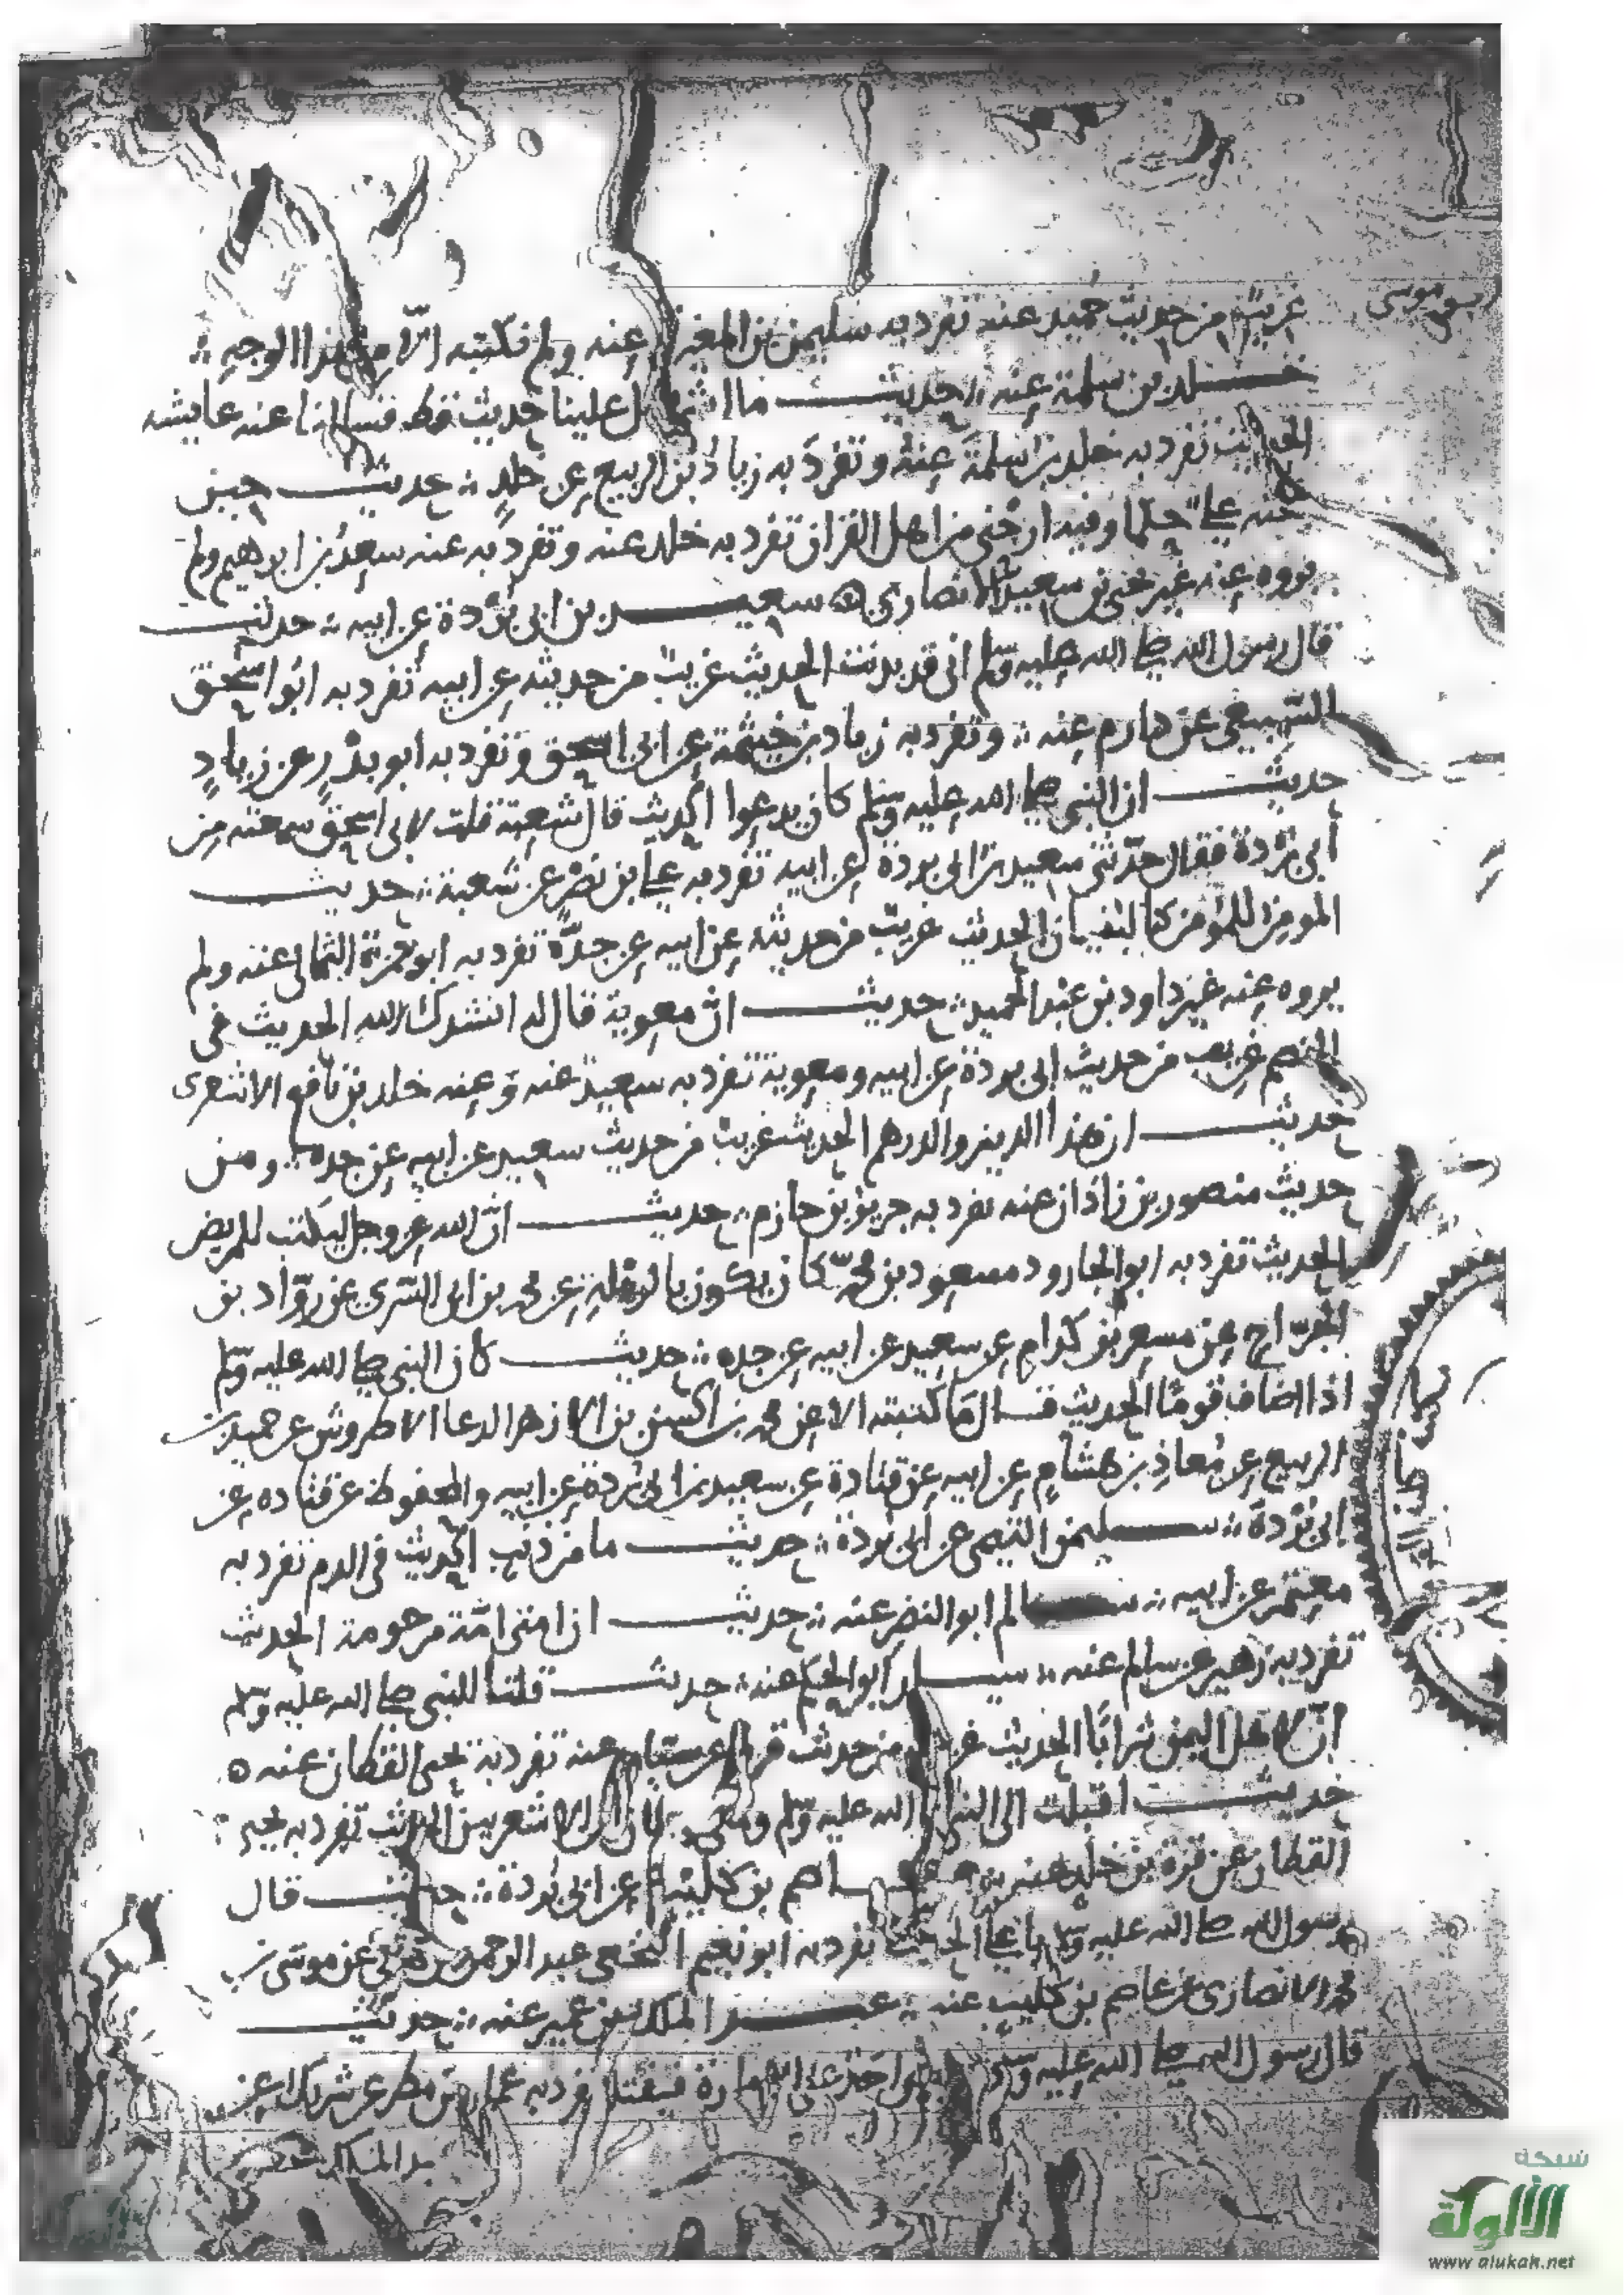 ابو موسى
غريب من حديث حميد عنه تفرد به سليمن بن المغيرة عنه ولم نكتبه الا من هذا الوجه
خلد بن سلمة عنه حديث ما اشكل علينا حديث قط فسالنا عنه عايشه
الحديث تفرد به خلد بن سلمة عنه وتفرد به زياد بن الربيع عن خلد حديث
تفرد به خلد عنه وتفرد به عنه سعد بن ابرهيم ولم
يروه عنه غير يحيى بن سعيد الانصاري سعيد بن ابي بردة عن ابيه حديث
قال رسول الله صلى الله عليه وسلم اني قد بدنت الحديث غريب من حديثه عن ابيه تفرد به ابو اسحق
السبيعي عن دارم عنه وتفرد به زياد بن خيثمة عن ابي اسحق وتفرد به ابو بدر عن زياد
حديث ان النبي صلى الله عليه وسلم كان يدعوا الحديث قال شعبة قلت لابي اسحق سمعته من
أبي بردة فقال حدثني سعيد بن ابي بردة عن ابيه تفرد به علي بن نصر عن شعبة حديث
المومن للمؤمن كالبنيان الحديث غريب من حديثه عن ابيه عن جده تفرد به ابو حمزة الثمالي عنه ولم
يروه عنه غير داود بن عبد الحميد حديث ان معوية قال له انشدك الله الحديث في
غريب من حديث ابي بردة عن ابيه ومعوية تفرد به سعيد عنه وعنه خلد بن نافع الاشعري
حديث ان هذا الدينر والدرهم الحديث غريب من حديث سعيد عن ابيه عن جده ومن
حديث منصور بن زاذان عنه تفرد به جرير بن حازم حديث ان الله عز وجل ليكتب للمريض
الحديث تفرد به ابو الجارود مسعود بن محمد كان يكون بالرملة عن محمد بن ابي السري عن رواد بن
الجراح عن مسعر بن كدام عن سعيد عن ابيه عن جده حديث كان النبي صلى الله عليه وسلم
اذا اضاف قوما الحديث قال ما كتبته الا عن محمد بن الحسن بن الازهر الدعا الاطروش عن حميد بن
الربيع عن معاذ بن هشام عن ابيه عن قتادة عن سعيد بن ابي بردة عن ابيه والمحفوظ عن قتاده عن
ابي بردة سليمن التيمي عن ابي بردة حديث ما من ذنب الحديث في الدم تفرد به
معتمر عن ابيه سالم ابو النضر عنه حديث ان امتي امة مرحومة الحديث
تفرد به زهير عن سالم عنه سيار ابو الحكم عنه حديث قلنا للنبي صلى الله عليه وسلم
ان لاهل اليمن شرابا الحديث غريب من حديث قرة عن سيار عنه تفرد به يحيى القطان عنه
حديث اقبلت الى النبي صلى الله عليه وسلم ومعي رجلان من الاشعريين الحديث تفرد به يحيى
القطان عن قرة بن خلد عنه عاصم بن كليب عن ابي بردة حديث قال
رسول الله صلى الله عليه وسلم يا علي الحديث تفرد به ابو نعيم النخعي عبد الرحمن بن هاني عن موسى بن
محمد الانصاري عن عاصم بن كليب عنه عبد الملك بن عمير عنه حديث
قال رسول الله صلى الله عليه وسلم تفرد به عمار بن مطر عن شريك عن
عبد الملك
شبكة
الألوكة
www.alukah.net